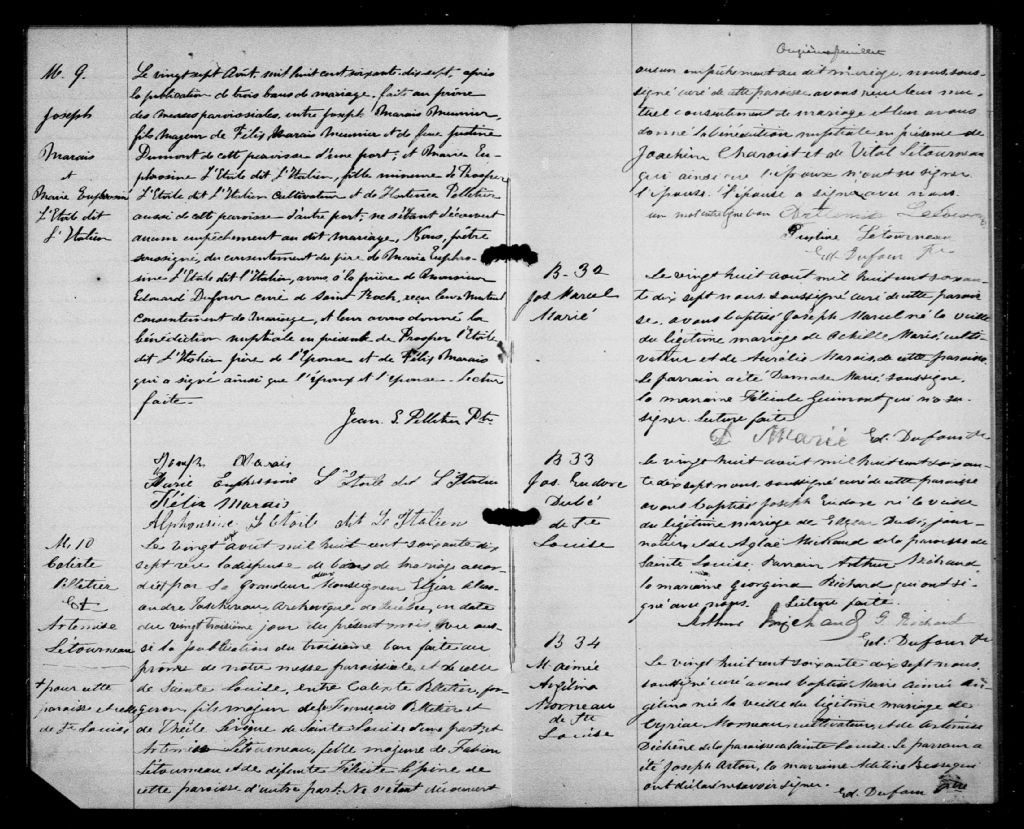 M. 9.
Joseph
Marais
et
Marie Euphrosine
L'Etoile dit
L'Italien
Le vingt sept Août, mil huit cent soixante-dix sept, après
la publication de trois bans de mariage, faite au prône
des messes paroissiales, entre Joseph Marais Meunier,
fils majeur de Félix Marais Meunier et de feue Justine
Dumont de cette paroisse d'une part, et Marie Eu-
phrosine L'Etoile dit L'Italien, fille mineure de Prosper
L'Etoile dit L'Italien Cultivateur et de Hortence Pelletier
aussi de cette paroisse d'autre part, ne s'étant découvert
aucun empêchement au dit mariage, Nous, prêtre
soussigné, du consentement du père de Marie Euphro-
sine L'Etoile dit l'Italien, avons à la prière de Monsieur
Edouard Dufour curé de Saint-Roch, reçu leur mutuel
consentement de mariage, et leur avons donné la
bénédiction nuptiale en présence de Prosper l'Etoile
dit L'Italien père de l'Epouse et de Félix Marais
qui a signé ainsi que l'époux et l'épouse. Lecture
faite.
Jean S. Pelletier Ptre
Joseph Marais
Marie Euphrosine L'Etoile dit L'Italien
Félix Marais
Alphonsine L'Etoile dit Le Italien
M. 10
Calixte
Pelletier
Et
Artémise
Létourneau
+ pour cette
paroisse et celle
de Ste Louise
Le vingt août mil huit cent soixante dix
sept vu la dispense de bans de mariage accor-
dée par Sa Grandeur Monseigneur Elzéar Alex-
andre Taschereau Archevêque de Québec, en date
du vingt troisième jour du présent mois, vu aus-
si la publication du troisième ban faite au
prône de notre messe paroissiale, et de celle
de Sainte Louise, entre Calixte Pelletier, for-
geron, fils majeur de François Pelletier et
de Théile Lévêque de Sainte-Louise d'une part, et
Artémise Létourneau, fille majeure de Fabien
Létourneau et de défunte Félicité Lepine de
cette paroisse d'autre part: Ne s'étant découvert
Onzième feuillet
aucun empêchement au dit mariage, nous, sous-
signé curé de cette paroisse avons reçu leur mu-
tuel consentement de mariage et leur avons
donné la bénédiction nuptiale en présence de
Joachim Charoist et de Vital Létourneau
qui ainsi que l'époux n'ont su signer
l'épouse. l'épouse a signé avec nous.
un mot bon Artémise Létourneau
Pauline Letourneau
Ed. Dufour ptre
B-32
Jos Marcel
Marié
Le vingt huit août mil huit cent soixan-
te dix sept nous soussigné curé de cette parois-
se, avons baptisé Joseph Marcel né la veille
du légitime mariage de Achille Marié, culti-
vateur et de Aurélie Marais, de cette paroisse.
Le parrain a été Damase Marié, soussigné,
la marraine Félicité Guimont qui n'a su
signer. Lecture faite
D Marié Ed. Dufour ptre
B 33
Jos. Eudore
Dubé
de Ste
Louise
Le vingt huit août mil huit cent soixan-
te dix sept nous, soussigné curé de cette paroisse
avons baptisé Joseph Eudore né la veille
du légitime mariage de Edgar Dubé, jour-
nalier, et de Aglaé Michaud de la paroisse de
Sainte Louise. Parrain Arthur Michaud
la marraine Georgina Richard qui ont si-
gné avec nous. Lecture faite.
Arthur Michaud G. Richard
Ed. Dufour ptre
B 34
M aimée
Angélina
Morneau
de Ste
Louise
Le vingt huit cent soixante dix sept nous,
soussigné curé avons baptisé Marie Aimée An-
gélina née la veille du légitime mariage de
Cyriac Morneau, cultivateur, et de Artémise
Dechêne de la paroisse de Sainte Louise. Le parrain a
été Joseph la marraine Adeline qui
ont déclaré ne savoir signer.
Ed. Dufour ptre